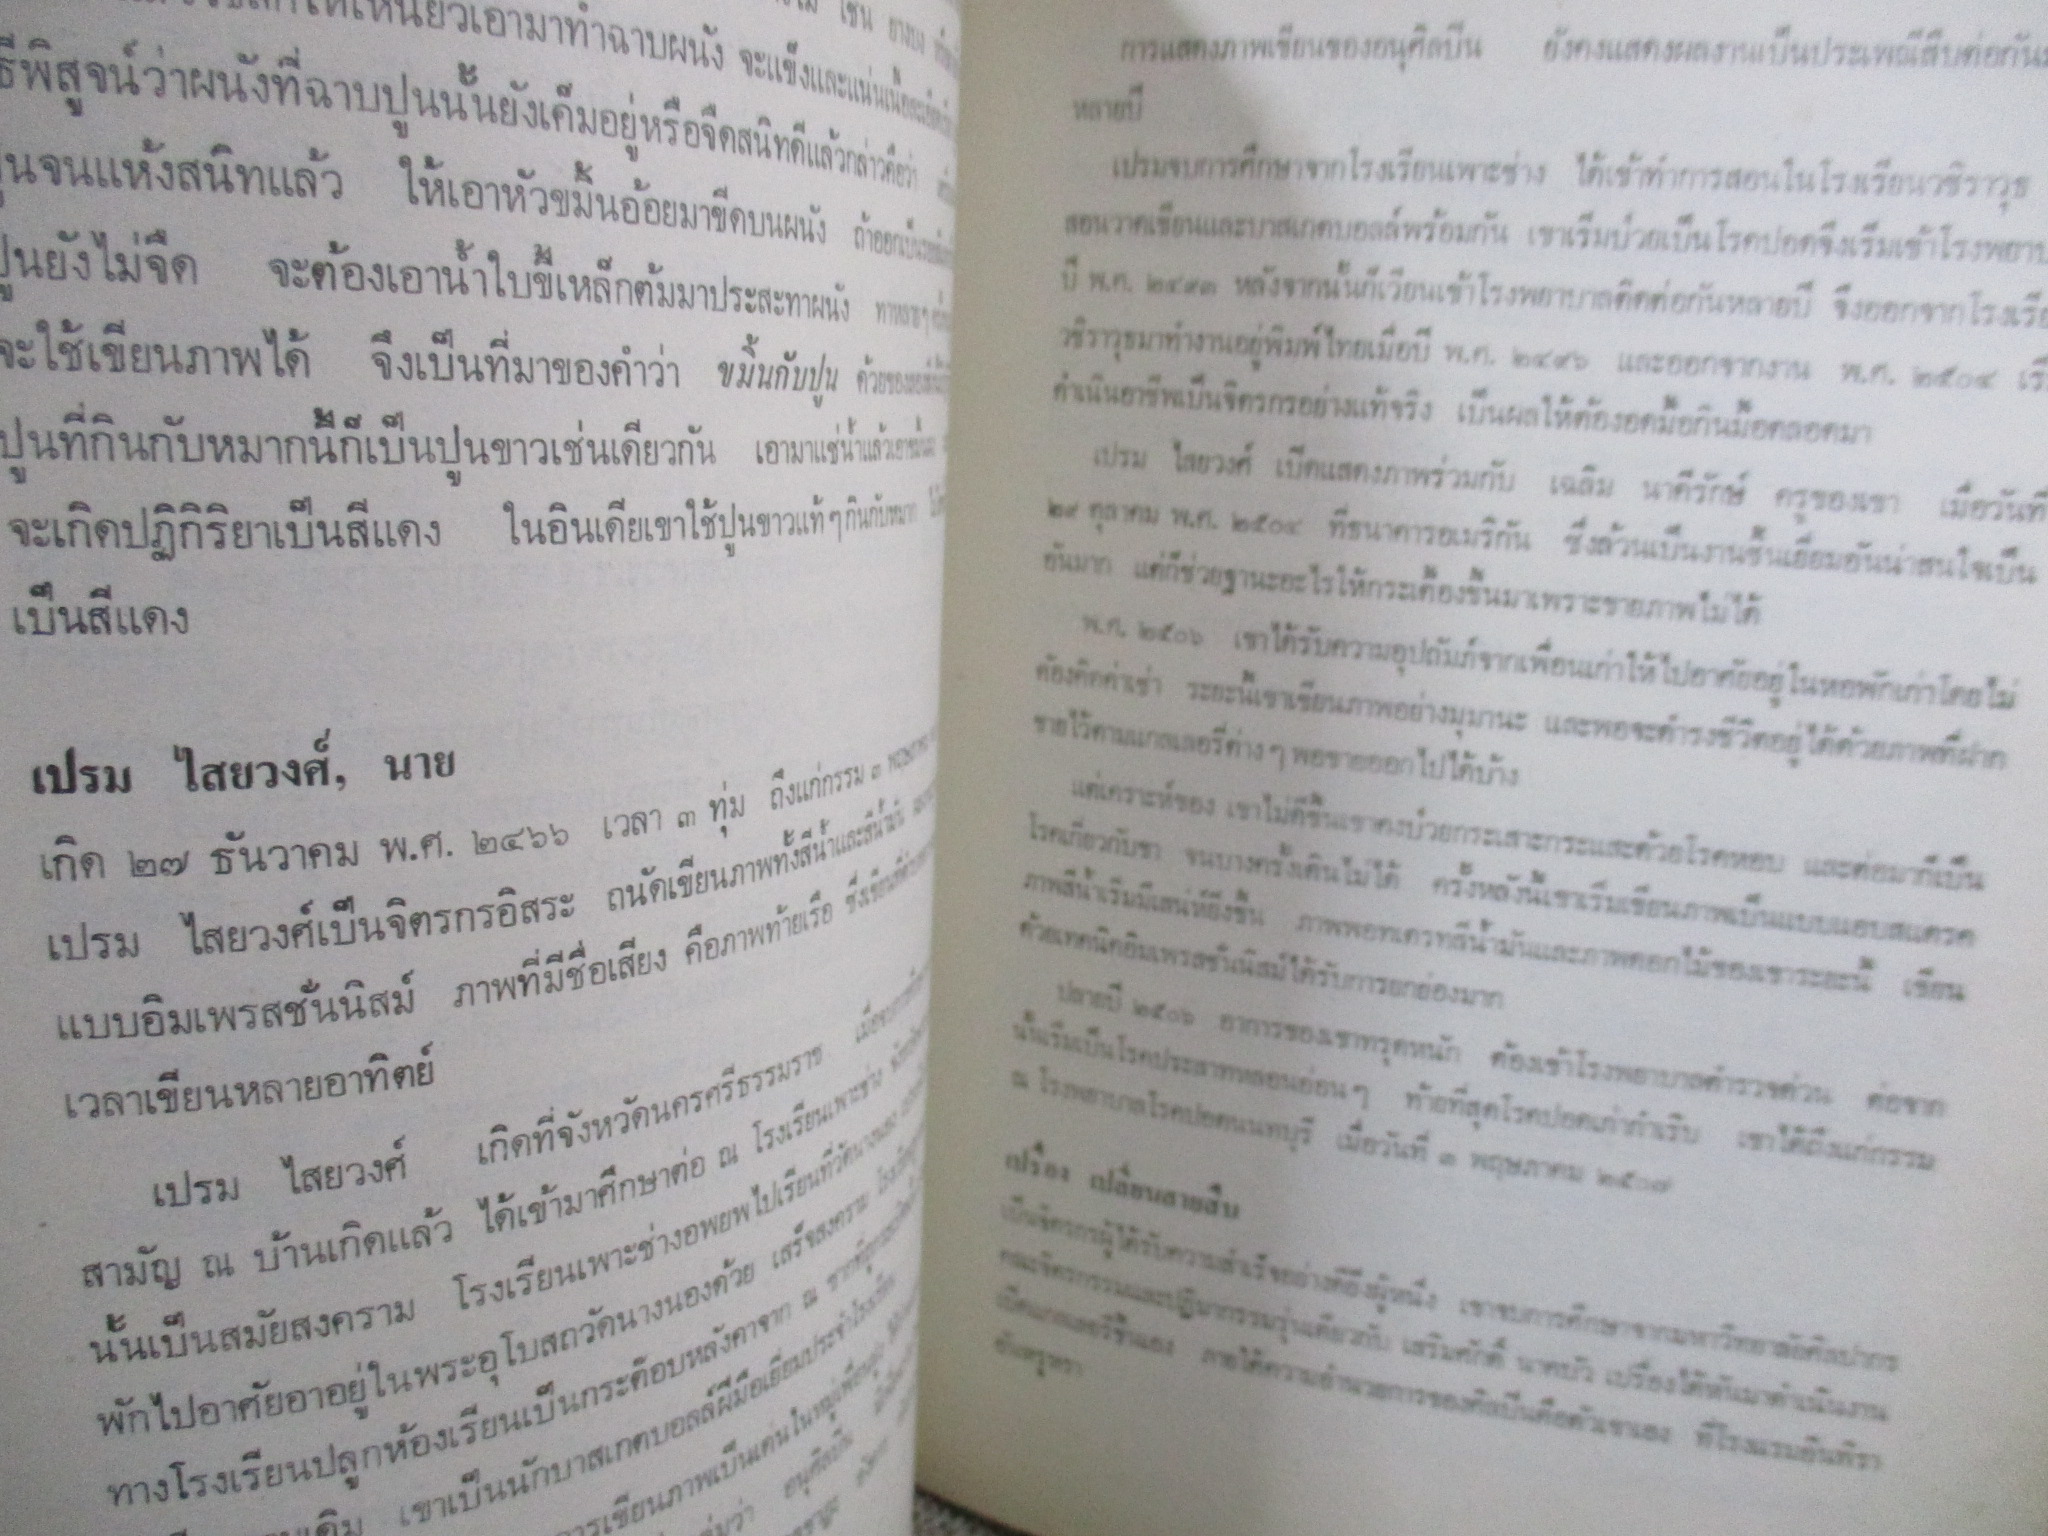 ให้เหนียวเอามาทำฉาบผนัง จะแข็งและแน่น
ธีพิสูจน์ว่าผนังที่ฉาบปูนนั้นยังเค็มอยู่หรือจืดสนิทดีแล้วกล่าวคือว่า
ปูนจนแห้งสนิทแล้ว ให้เอาหัวขมิ้นอ้อยมาขีดบนผนัง
ปูนยังไม่จืด จะต้องเอาน้ำใบขี้เหล็กต้มมาประสะทาผนัง
จะใช้เขียนภาพได้ จึงเป็นที่มาของคำว่า ขมิ้นกับปูน
ปูนที่กินกับหมากนี้ก็เป็นปูนขาวเช่นเดียวกัน เอามาแช่น้ำแล้ว
จะเกิดปฏิกิริยาเป็นสีแดง ในอินเดียเขาใช้ปูนขาวแท้ ๆ กินกับหมาก
เป็นสีแดง
เปรม ไสยวงศ์, นาย
เกิด ๒๗ ธันวาคม พ.ศ. ๒๔๖๖ เวลา ๓ ทุ่ม ถึงแก่กรรม ๓
เปรม ไสยวงศ์เป็นจิตรกรอิสระ ถนัดเขียนภาพทั้งสีน้ำและสีน้ำมัน
แบบอิมเพรสชั่นนิสม์ ภาพที่มีชื่อเสียง คือภาพท้ายเรือ
เวลาเขียนหลายอาทิตย์
เปรม ไสยวงศ์ เกิดที่จังหวัดนครศรีธรรมราช
สามัญ ณ บ้านเกิดแล้ว ได้เข้ามาศึกษาต่อ ณ โรงเรียนเพาะช่าง
นั้นเป็นสมัยสงคราม โรงเรียนเพาะช่างอพยพไปเรียนที่วัดนางนอง
พักไปอาศัยอาอยู่ในพระอุโบสถวัดนางนองด้วย เสร็จสงคราม
ทางโรงเรียนปลูกห้องเรียนเป็นกระต๊อบหลังคาจาก ณ
เดิม เขาเป็นนักบาสเกตบอลล์ฝีมือเยี่ยมประจำโรงเรียน
การเขียนภาพเป็นเด่นในหมู่เพื่อนฝูง
อนุศิลปิน
การแสดงภาพเขียนของอนุศิลปิน ยังคงแสดงผลงานเป็นประเพณีสืบต่อกันมา
หลายปี
เปรมจบการศึกษาจากโรงเรียนเพาะช่าง ได้เข้าทำการสอนในโรงเรียนวชิราวุธ
สอนวาดเขียนและบาสเกตบอลล์พร้อมกัน เขาเริ่มป่วยเป็นโรคปอดจึงเริ่มเข้าโรงพยาบาล
ปี พ.ศ. ๒๔๙๓ หลังจากนั้นก็เวียนเข้าโรงพยาบาลติดต่อกันหลายปี จึงออกจากโรงเรียน
วชิราวุธมาทำงานอยู่พิมพ์ไทยเมื่อปี พ.ศ. ๒๔๙๖ และออกจากงาน พ.ศ. ๒๕๐๔
ดำเนินอาชีพเป็นจิตรกรอย่างแท้จริง เป็นผลให้ต้องอดมื้อกินมื้อตลอดมา
เปรม ไสยวงศ์ เปิดแสดงภาพร่วมกับ เฉลิม นาคีรักษ์ ครูของเขา เมื่อวันที่
๒๙ ตุลาคม พ.ศ. ๒๕๐๔ ที่ธนาคารอเมริกัน ซึ่งล้วนเป็นงานชั้นเยี่ยมอันน่าสนใจเป็น
อันมาก แต่ก็ช่วยฐานะอะไรให้กระเตื้องขึ้นมาเพราะขายภาพไม่ได้
พ.ศ. ๒๕๐๖ เขาได้รับความอุปถัมภ์จากเพื่อนเก่าให้ไปอาศัยอยู่ในหอพักเก่าโดยไม่
ต้องคิดค่าเช่า ระยะนี้เขาเขียนภาพอย่างมุมานะ และพอจะดำรงชีวิตอยู่ได้ด้วยภาพที่ฝาก
ขายไว้ตามแกลเลอรี่ต่าง ๆ พอขายออกไปได้บ้าง
แต่เคราะห์ของ เขาไม่ดีขึ้นเขาคงป่วยกระเสาะกระแสะด้วยโรคหอบ และต่อมาก็เป็น
โรคเกี่ยวกับขา จนบางครั้งเดินไม่ได้ ครั้งหลังนี้เขาเริ่มเขียนภาพเป็นแบบแอบสแตรค
ภาพสีน้ำเริ่มมีเสน่ห์ยิ่งขึ้น ภาพพอทเตรทสีน้ำมันและภาพดอกไม้ของเขาระยะนี้ เขียน
ด้วยเทคนิคอิมเพรสชั่นนิสม์ได้รับการยกย่องมาก
ปลายปี ๒๕๐๖ อาการของเขาทรุดหนัก ต้องเข้าโรงพยาบาลตำรวจด่วน ต่อจาก
นั้นเริ่มเป็นโรคประสาทหลอนอ่อน ๆ ท้ายที่สุดโรคปอดเก่ากำเริบ เขาได้ถึงแก่กรรม
ณ โรงพยาบาลโรคปอดนนทบุรี เมื่อวันที่ ๓ พฤษภาคม ๒๕๐๗
เปรื่อง เปลี่ยนสายสืบ
เป็นจิตรกรผู้ได้รับความสำเร็จอย่างดียิ่งผู้หนึ่ง เขาจบการศึกษาจากมหาวิทยาลัยศิลปากร
คณะจิตรกรรมและปฏิมากรรมรุ่นเดียวกับ เสริมศักดิ์ นาคบัว เปรื่องได้หันมาดำเนินงาน
เปิดแกลเลอรี่ขึ้นเอง ภายใต้ความอำนวยการของศิลปินคือตัวเขาเอง ที่โรงแรมอินทรา